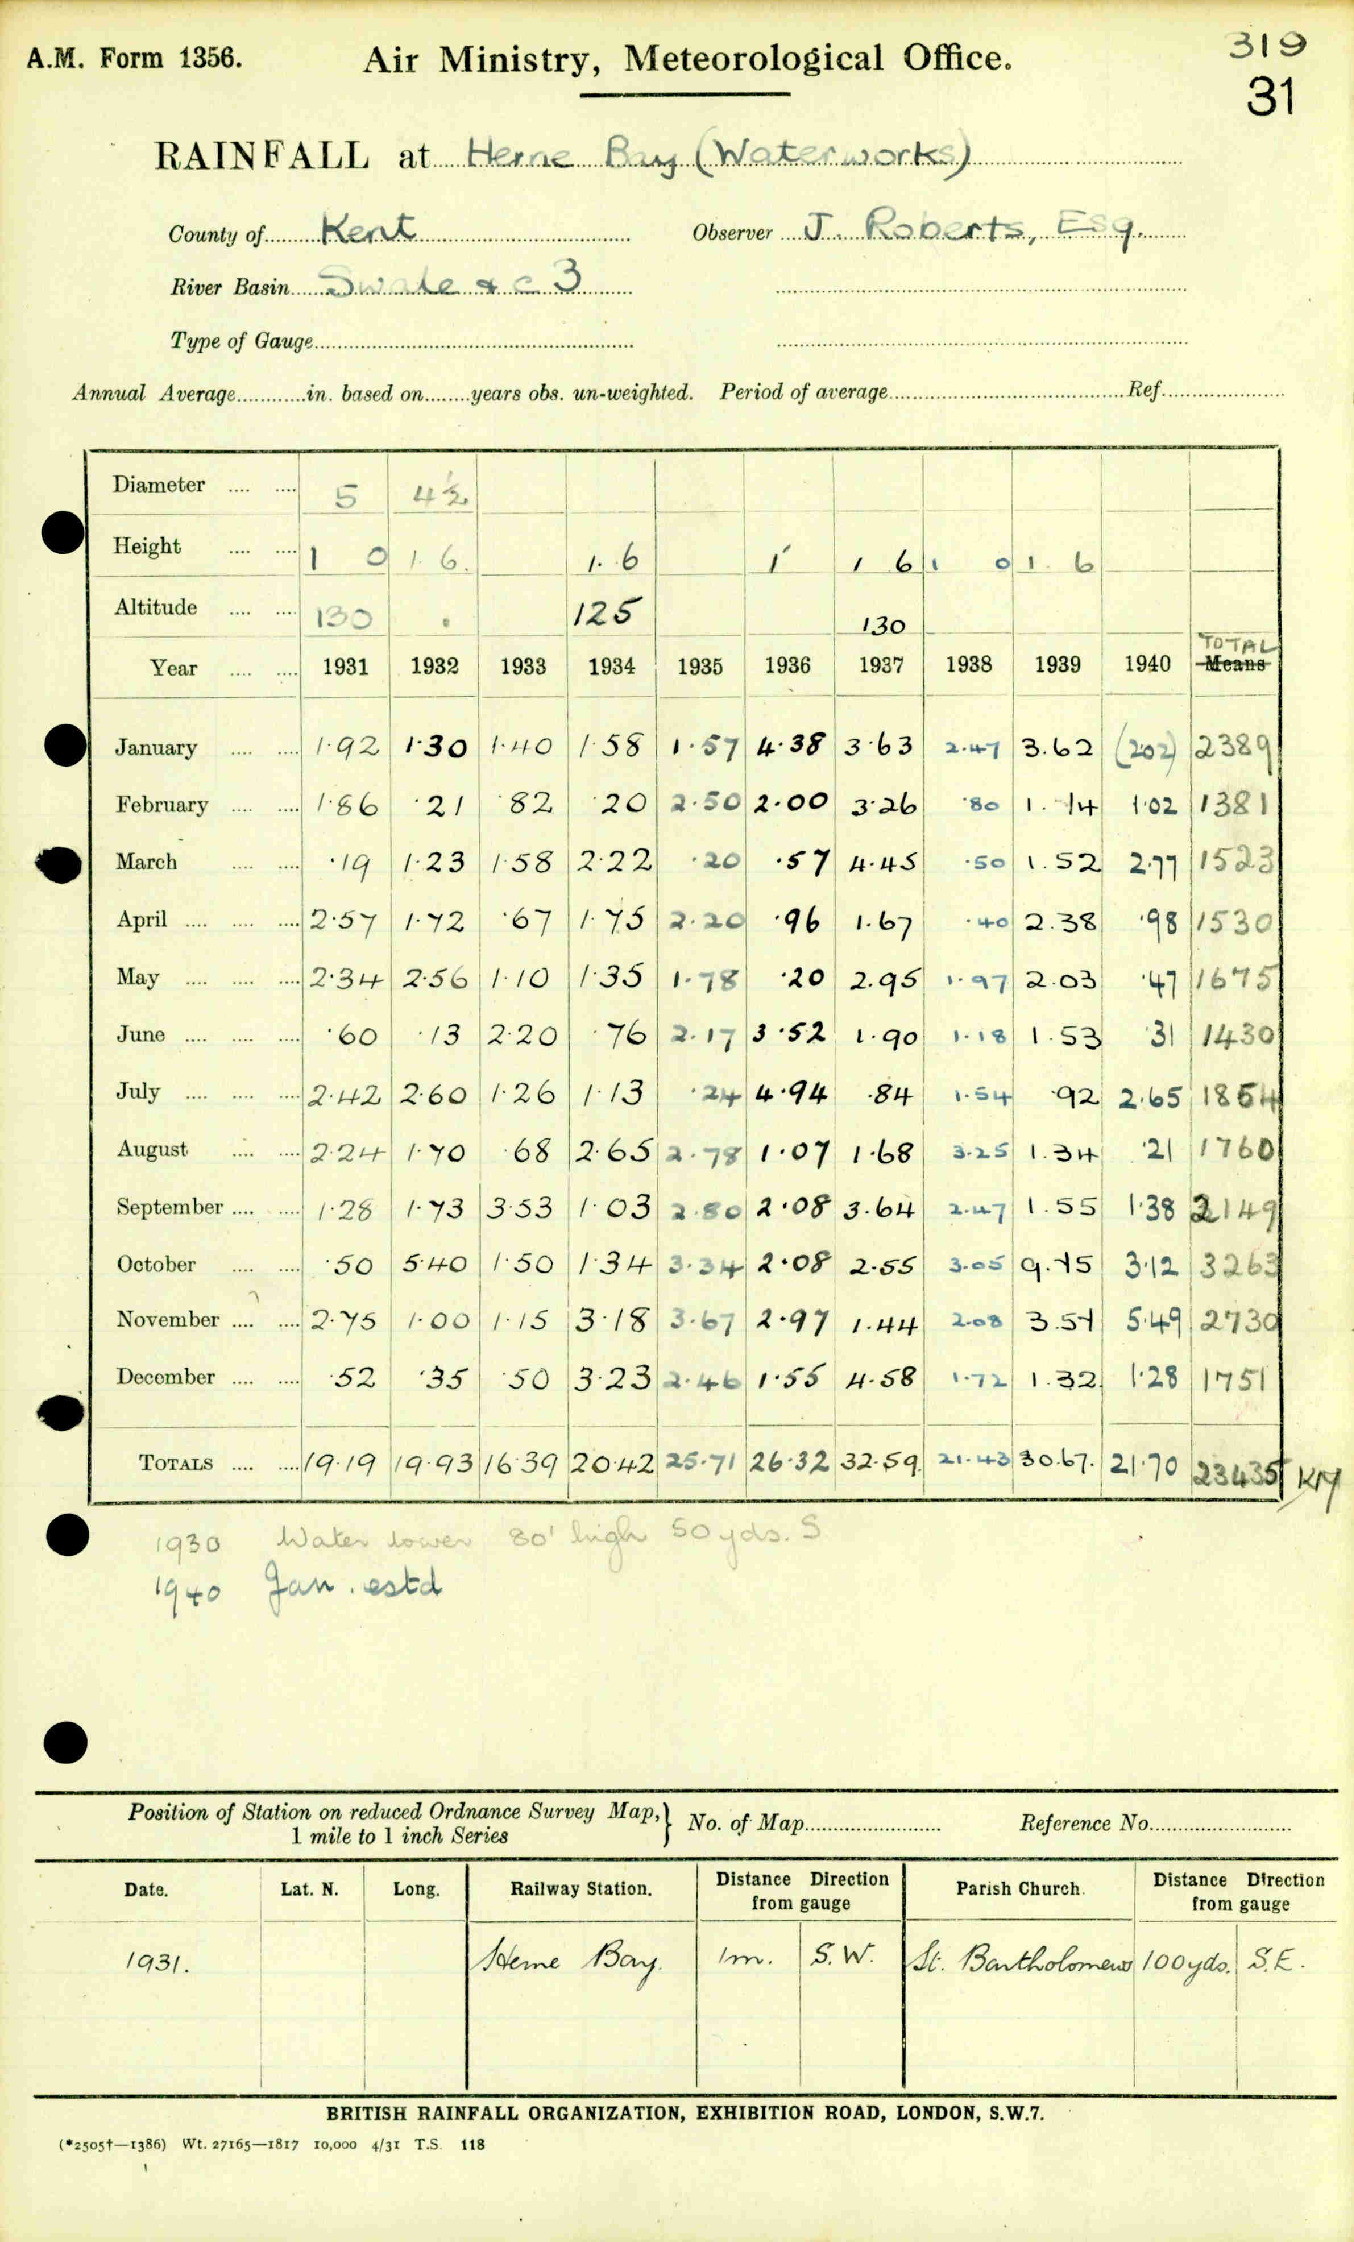 A.M. Form 1356.
Air Ministry, Meteorological Office.
319
31
RAINFALL at Herne Bay (Waterworks)
County of Kent Observer J. Roberts, Esq.
River Basin Swale & c 3
Type of Gauge
Annual Average in. based on years obs. un-weighted. Period of average Ref.
Diameter 5 4½
Height 1 0 1. 6. 1. 6 1' 1 6 1 0 1. 6
Altitude 130 . 125 130
Year 1931 1932 1933 1934 1935 1936 1937 1938 1939 1940 TOTAL Means
January 1·92 1·30 1·40 1·58 1·57 4·38 3·63 2·47 3.62 (202) 2389
February 1·86 ·21 ·82 ·20 2·50 2·00 3·26 ·80 1.14 1·02 1381
March ·19 1·23 1·58 2·22 ·20 ·57 4·45 ·50 1.52 2·77 1523
April 2·57 1·72 ·67 1·75 2·20 ·96 1·67 ·40 2.38 ·98 1530
May 2·34 2·56 1·10 1·35 1·78 ·20 2.95 1·97 2.03 ·47 1675
June ·60 ·13 2·20 ·76 2·17 3·52 1·90 1·18 1.53 ·31 1430
July 2·42 2·60 1·26 1·13 ·24 4·94 ·84 1·54 ·92 2·65 1854
August 2·24 1·70 ·68 2·65 2·78 1·07 1·68 3·25 1.34 ·21 1760
September 1·28 1·73 3·53 1·03 2·80 2·08 3·64 2·47 1.55 1·38 2149
October ·50 5·40 1·50 1·34 3·34 2·08 2·55 3·05 9.75 3·12 3263
November 2·75 1·00 1·15 3·18 3·67 2·97 1·44 2·08 3.57 5·49 2730
December ·52 ·35 ·50 3·23 2·46 1·55 4·58 1·72 1.32 1·28 1751
TOTALS 19·19 19·93 16·39 20·42 25·71 26·32 32·59 21·43 30.67. 21·70 23435 KM
1930 Water tower 80' high 50 yds. S
1940 Jan. estd
Position of Station on reduced Ordnance Survey Map, } No. of Map Reference No.
1 mile to 1 inch Series
Date. Lat. N. Long. Railway Station. Distance Direction from gauge Parish Church. Distance Direction from gauge
1931. Herne Bay. 1m. S.W. St. Bartholomews 100yds. S.E.
BRITISH RAINFALL ORGANIZATION, EXHIBITION ROAD, LONDON, S.W.7.
(*2505†—1386) Wt. 27165—1817 10,000 4/31 T.S. 118